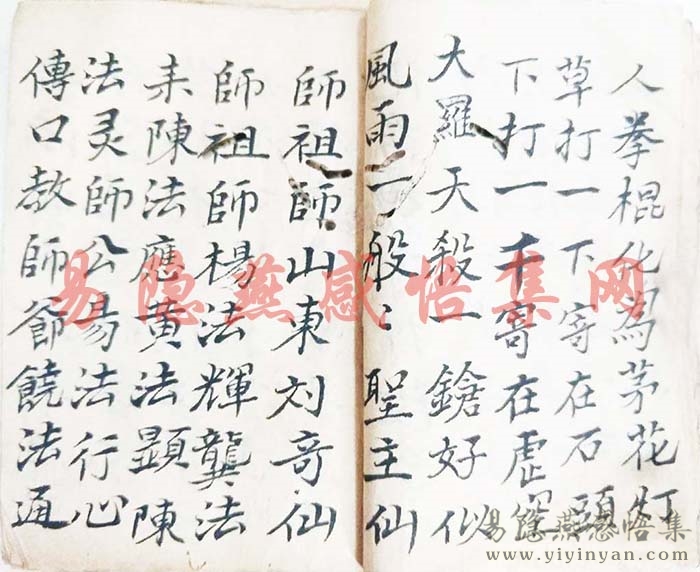 人拳棍化為茅花灯
草打一下寄在石頭
下打一千寄在虛
大羅天殺一鎗好似
風雨一般〻聖主仙
師祖師山東刘奇仙
師祖師楊法輝龔法
耒陳法應黄法顯陳
法灵師公易法行心
傳口教師爺饒法通
易隐燕感悟集网
易隐燕感悟集
www.yiyinyan.com